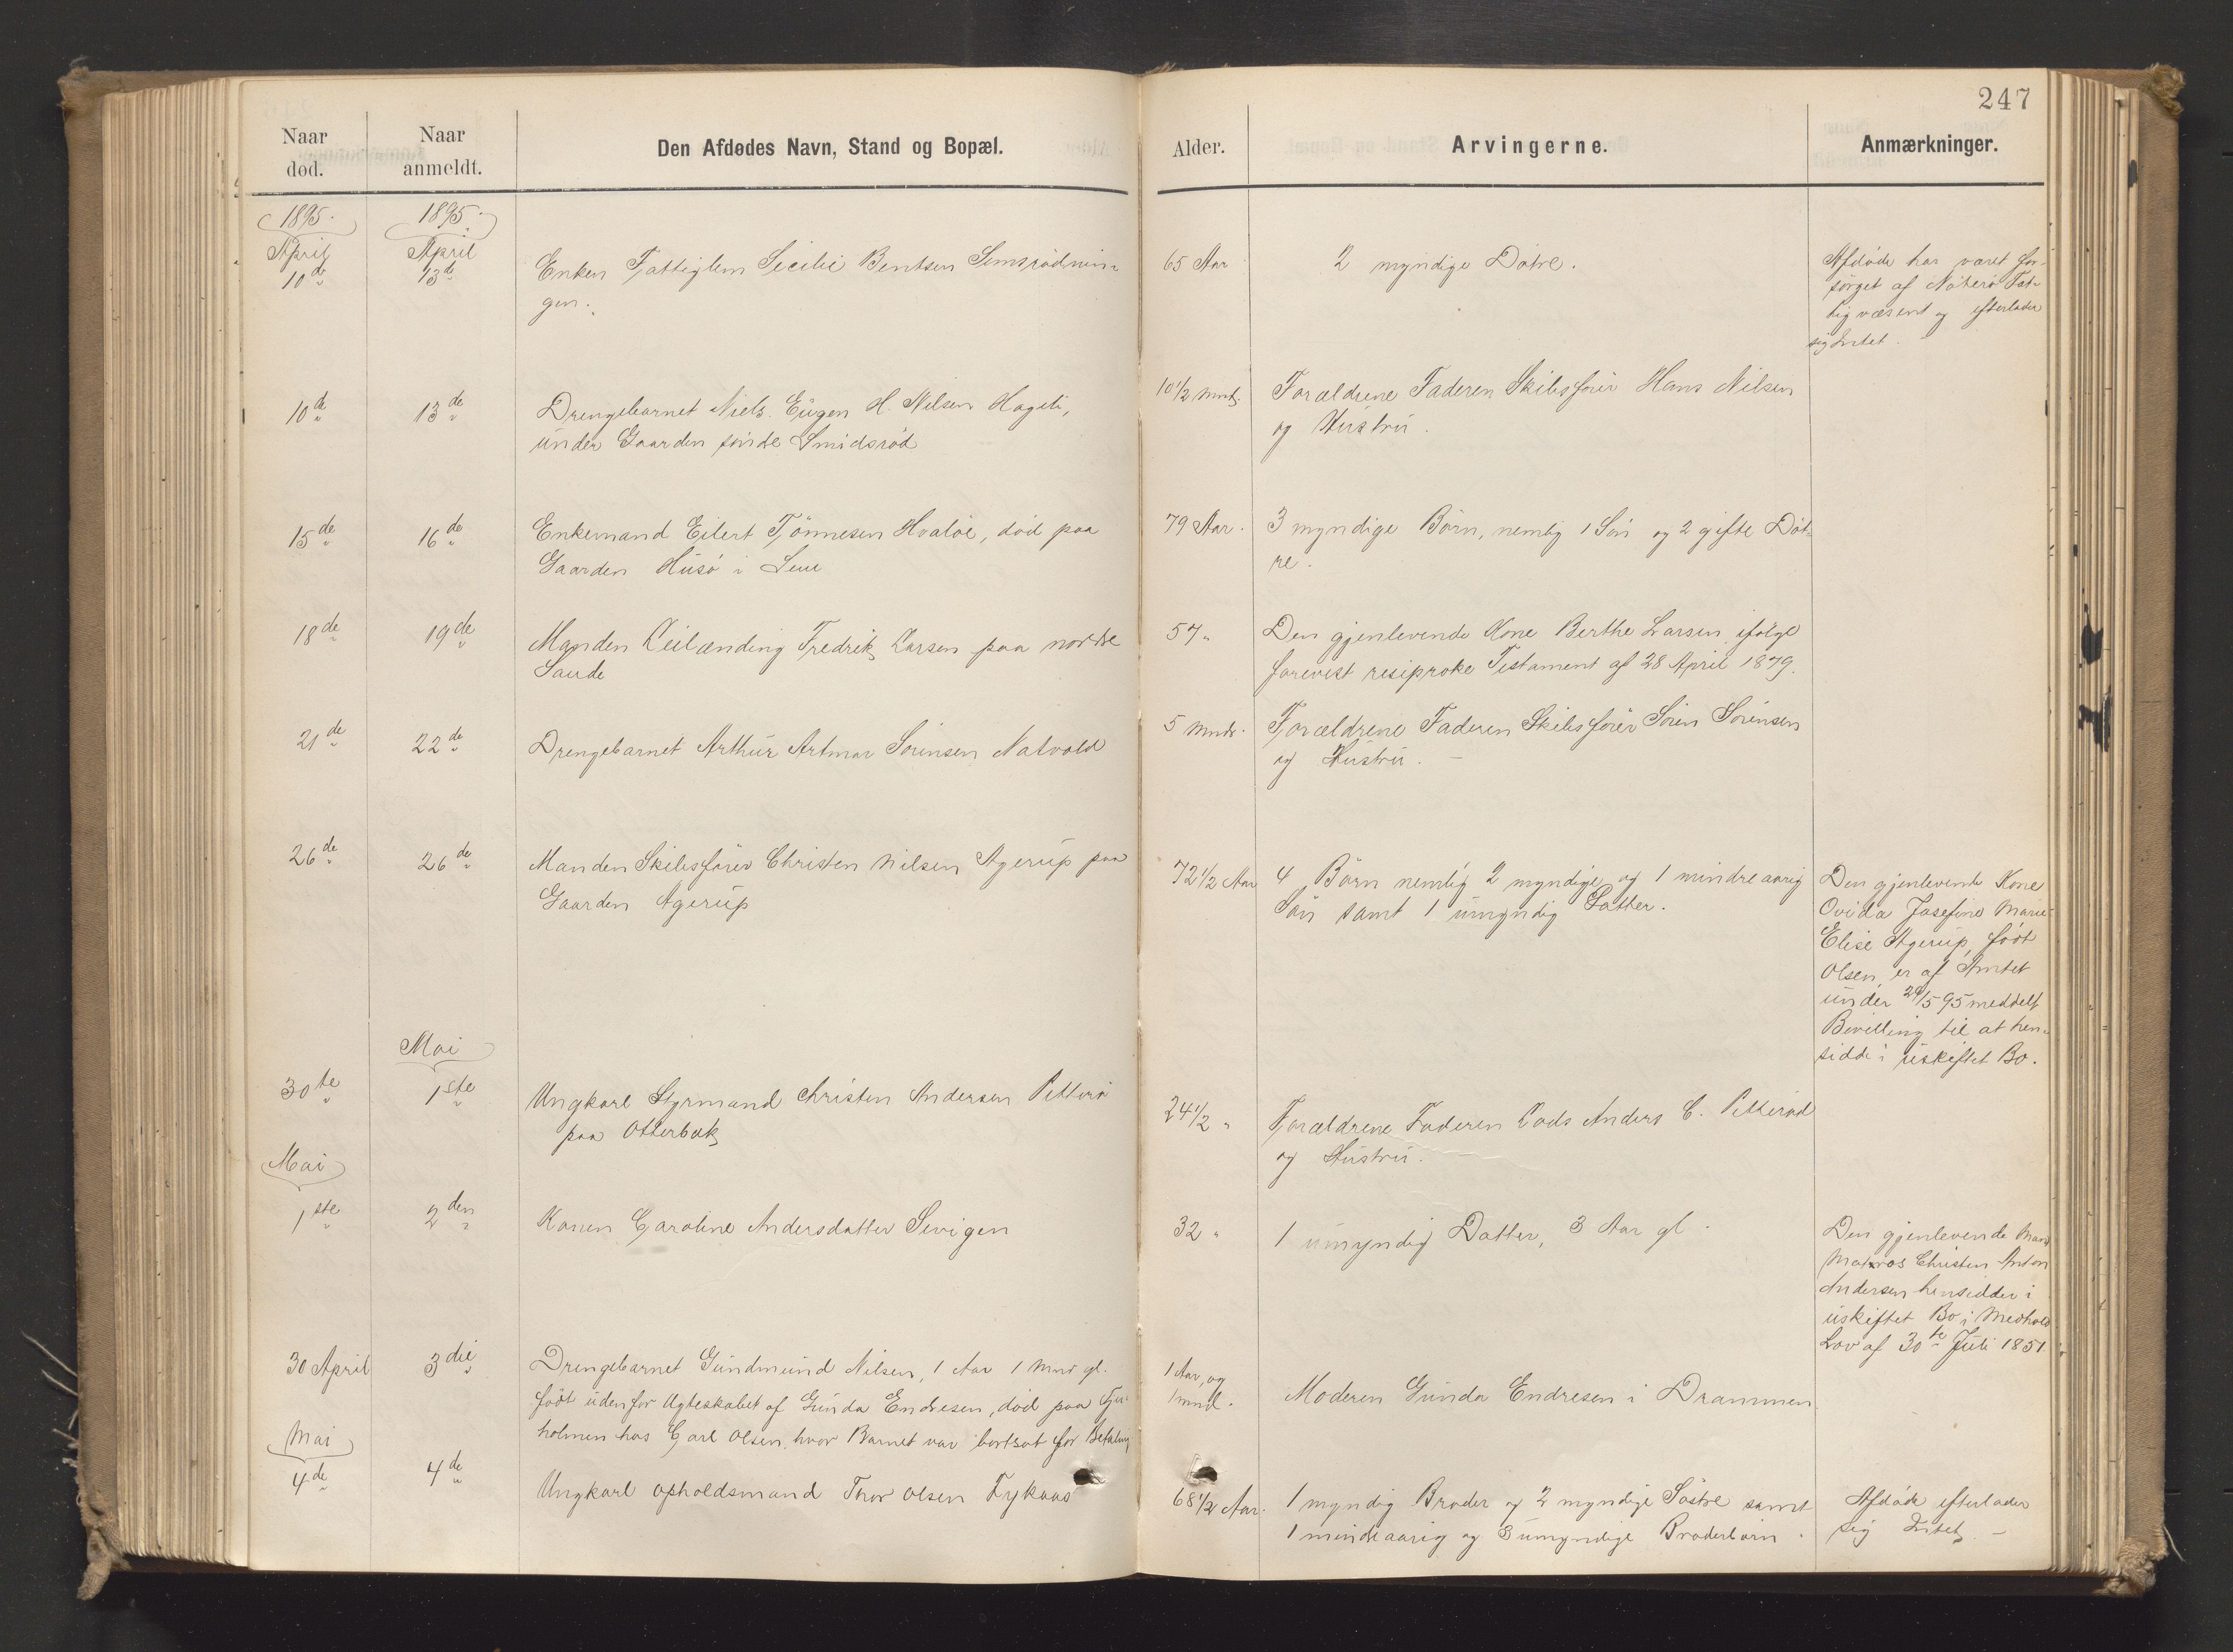 247
Naar død.
Naar anmeldt.
Den Afdødes Navn, Stand og Bopæl.
Alder.
Arvingerne.
Anmærkninger.
1895.
1895.
April
April
10de
13de
Enken Fattiglem Sicilie Bentsen Smsrødnin-
gen.
65 Aar
2 myndige Døtre.
Afdøde har været for-
sørget af Nøterø Fat-
tigvæsent og efterlader
sig Intet.
10de
13de
Drengebarnet Niels Eugen H. Nilsen Hageli,
under Gaarden søndre Smidsrød
10 1/2 Mnd.
Forældrene Faderen Skibsfører Hans Nilsen
og Hustru.
15de
16de
Enkemand Eilert Tjønnesen Hvaløe, død paa
Gaarden Husø i Sem
79 Aar.
3 myndige Børn, nemlig 1 Søn og 2 gifte Døt-
re.
18de
19de
Manden Leilænding Fredrik Larsen paa nordre
Sande
57 "
Den gjenlevende Kone Berthe Larsen ifølge
forevist resiproke Testament af 28 April 1879.
21de
22de
Drengebarnet Arthur Artmar Sørensen Natvold
5 Mndr.
Forældrene Faderen Skibsfører Søren Sørensen
og Hustru. –
26de
26de
Manden Skibsfører Christen Nilsen Agerup paa
Gaarden Agerup
72 1/2 Aar
4 Børn nemlig 2 myndige og 1 mindreaarig
Søn samt 1 umyndig Datter.
Den gjenlevende Kone
Ovida Josefine Marie
Elise Agerup, født
Olsen, er af Amtet
under 29/5 95 meddelt
Bevilling til at hen-
sidde i uskiftet Bo.
Mai
30te
1ste
Ungkarl Styrmand Christen Andersen Petterø
paa Otterbæk
24 1/2 "
Forældrene Faderen Lods Anders C. Petterød
og Hustru.
Mai
1ste
2den
Konen Caroline Andersdatter Sevigen
32 "
1 umyndig Datter, 3 Aar gl.
Den gjenlevende Mand
Matros Christen Anton
Andersen hensidder i
uskiftet Bo i Medhold
Lov af 30te Juli 1851.
30 April
3die
Drengebarnet Gundmund Nilsen, 1 Aar 1 Mnd gl.
født udenfor Ægteskabet af Gunda Endresen, død paa
holmen hos Carl Olsen, hvor Barnet var bortsat for Betaling
1 Aar, og
1 mnd.
Moderen Gunda Endresen i Drammen
Mai
4de
4de
Ungkarl Opholdsmand Thor Olsen Fykaas
68 1/2 Aar.
1 myndig Broder og 2 myndige Søstre samt
1 mindreaarig og 3 umyndige Broderbørn.
Afdøde efterlader
sig Intet. –